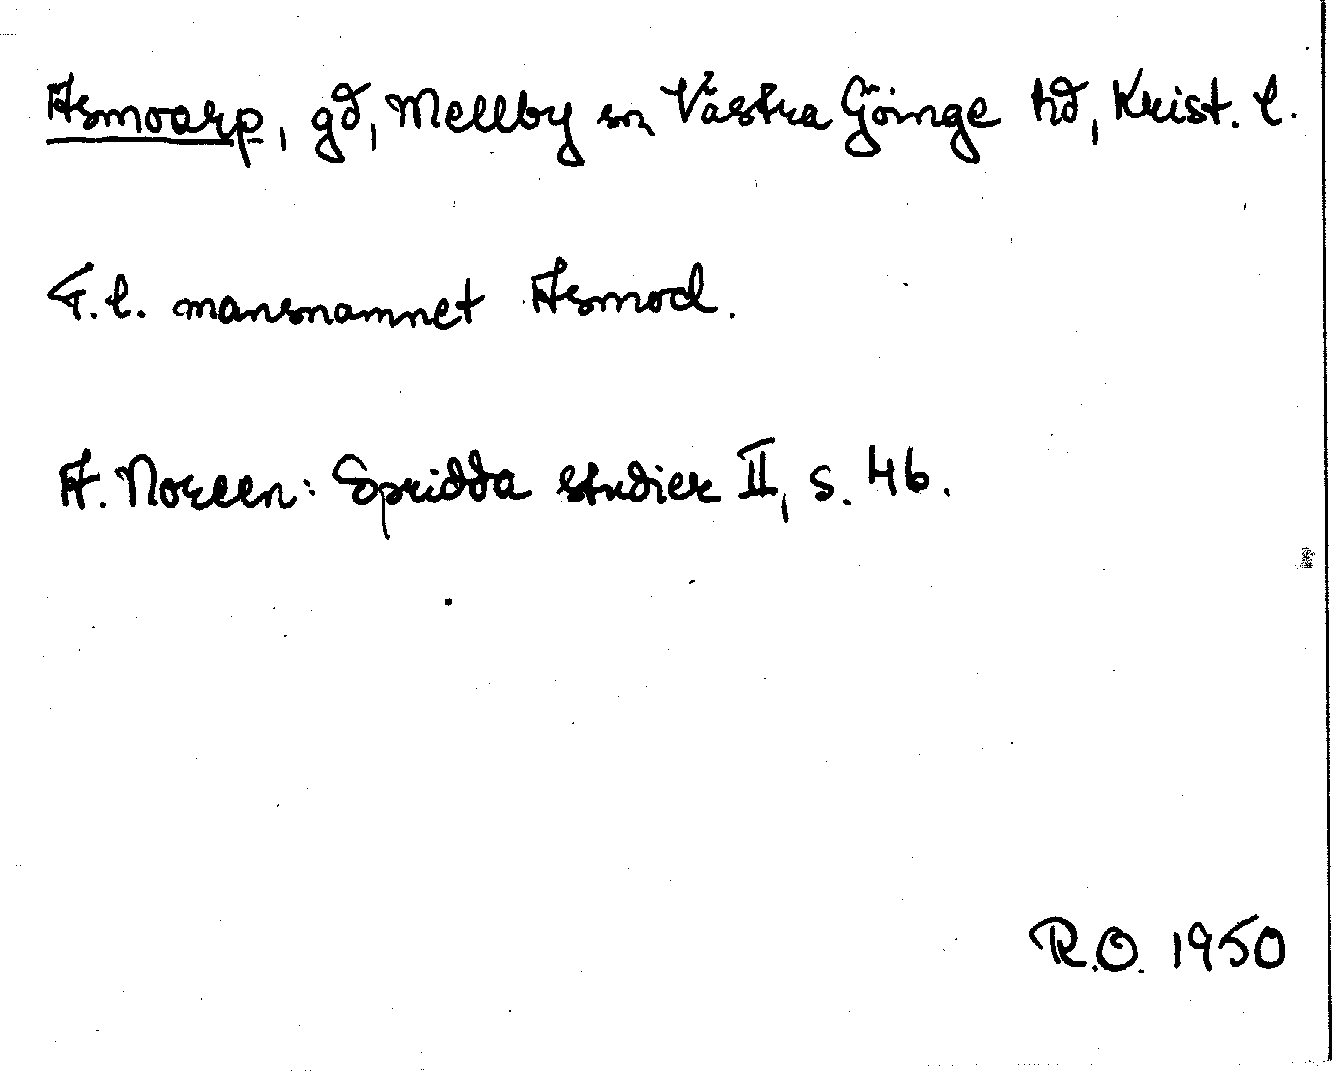 Asmoarp, gd, Mellby sn Västra Göinge hd, Krist. l.
F. l. mansnamnet Asmod.
A. Noreen: Spridda studier II, s. 46.
R.O. 1950